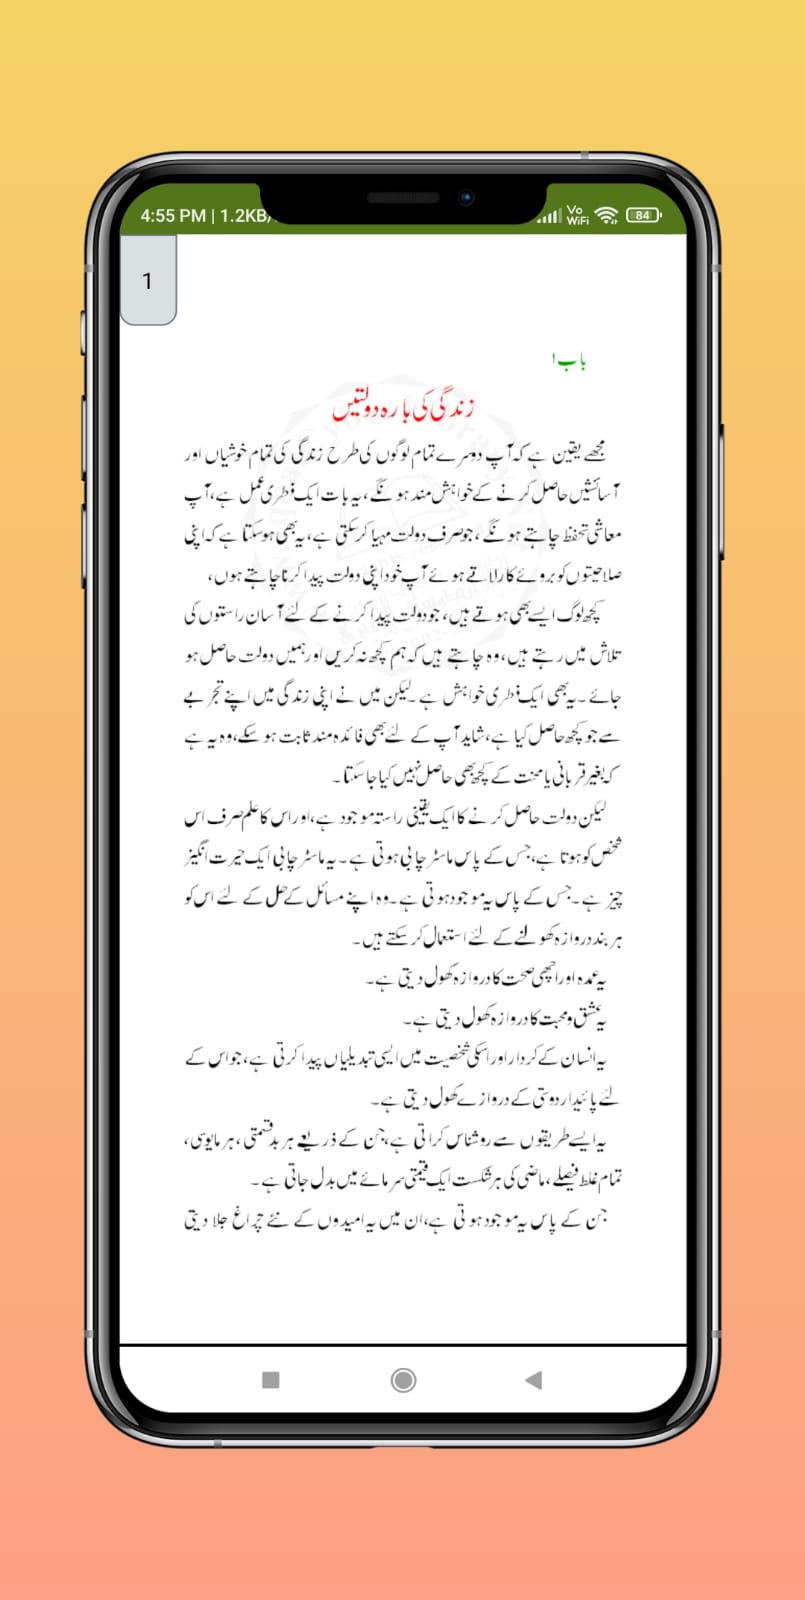 4:55 PM | 1.2KB/
Vo
WiFi
84
1
باب ۱
زندگی کی بارہ دولتیں
مجھے یقین ہے کہ آپ دوسرے تمام لوگوں کی طرح زندگی کی تمام خوشیاں اور
آسائشیں حاصل کرنے کے خواہش مند ہونگے، یہ بات ایک فطری عمل ہے، آپ
معاشی تحفظ چاہتے ہونگے، جو صرف دولت مہیا کر سکتی ہے، یہ بھی ہوسکتا ہے کہ اپنی
صلاحیتوں کو بروئے کار لاتے ہوئے آپ خود اپنی دولت پیدا کرنا چاہتے ہوں،
کچھ لوگ ایسے بھی ہوتے ہیں، جو دولت پیدا کرنے کے لئے آسان راستوں کی
تلاش میں رہتے ہیں، وہ چاہتے ہیں کہ ہم کچھ نہ کریں اور ہمیں دولت حاصل ہو
جائے۔ یہ بھی ایک فطری خواہش ہے۔ لیکن میں نے اپنی زندگی میں اپنے تجربے
سے جو کچھ حاصل کیا ہے، شاید آپ کے لئے بھی فائدہ مند ثابت ہو سکے، وہ یہ ہے
کہ بغیر قربانی یا محنت کے کچھ بھی حاصل نہیں کیا جا سکتا۔
لیکن دولت حاصل کرنے کا ایک یقینی راستہ موجود ہے، اور اس کا علم صرف اس
شخص کو ہوتا ہے، جس کے پاس ماسٹر چابی ہوتی ہے۔ یہ ماسٹر چابی ایک حیرت انگیز
چیز ہے۔ جس کے پاس یہ موجود ہوتی ہے۔ وہ اپنے مسائل کے حل کے لئے اس کو
ہر بند دروازہ کھولنے کے لئے استعمال کر سکتے ہیں۔
یہ عمدہ اور اچھی صحت کا دروازہ کھول دیتی ہے۔
یہ عشق و محبت کا دروازہ کھول دیتی ہے۔
یہ انسان کے کردار اور اسکی شخصیت میں ایسی تبدیلیاں پیدا کرتی ہے، جو اس کے
لئے پائیدار دوستی کے دروازے کھول دیتی ہے۔
یہ ایسے طریقوں سے روشناس کراتی ہے، جن کے ذریعے ہر بدقسمتی، ہر مایوسی،
تمام غلط فیصلے، ماضی کی ہر شکست ایک قیمتی سرمائے میں بدل جاتی ہے۔
جن کے پاس یہ موجود ہوتی ہے، ان میں یہ امیدوں کے نئے چراغ جلا دیتی